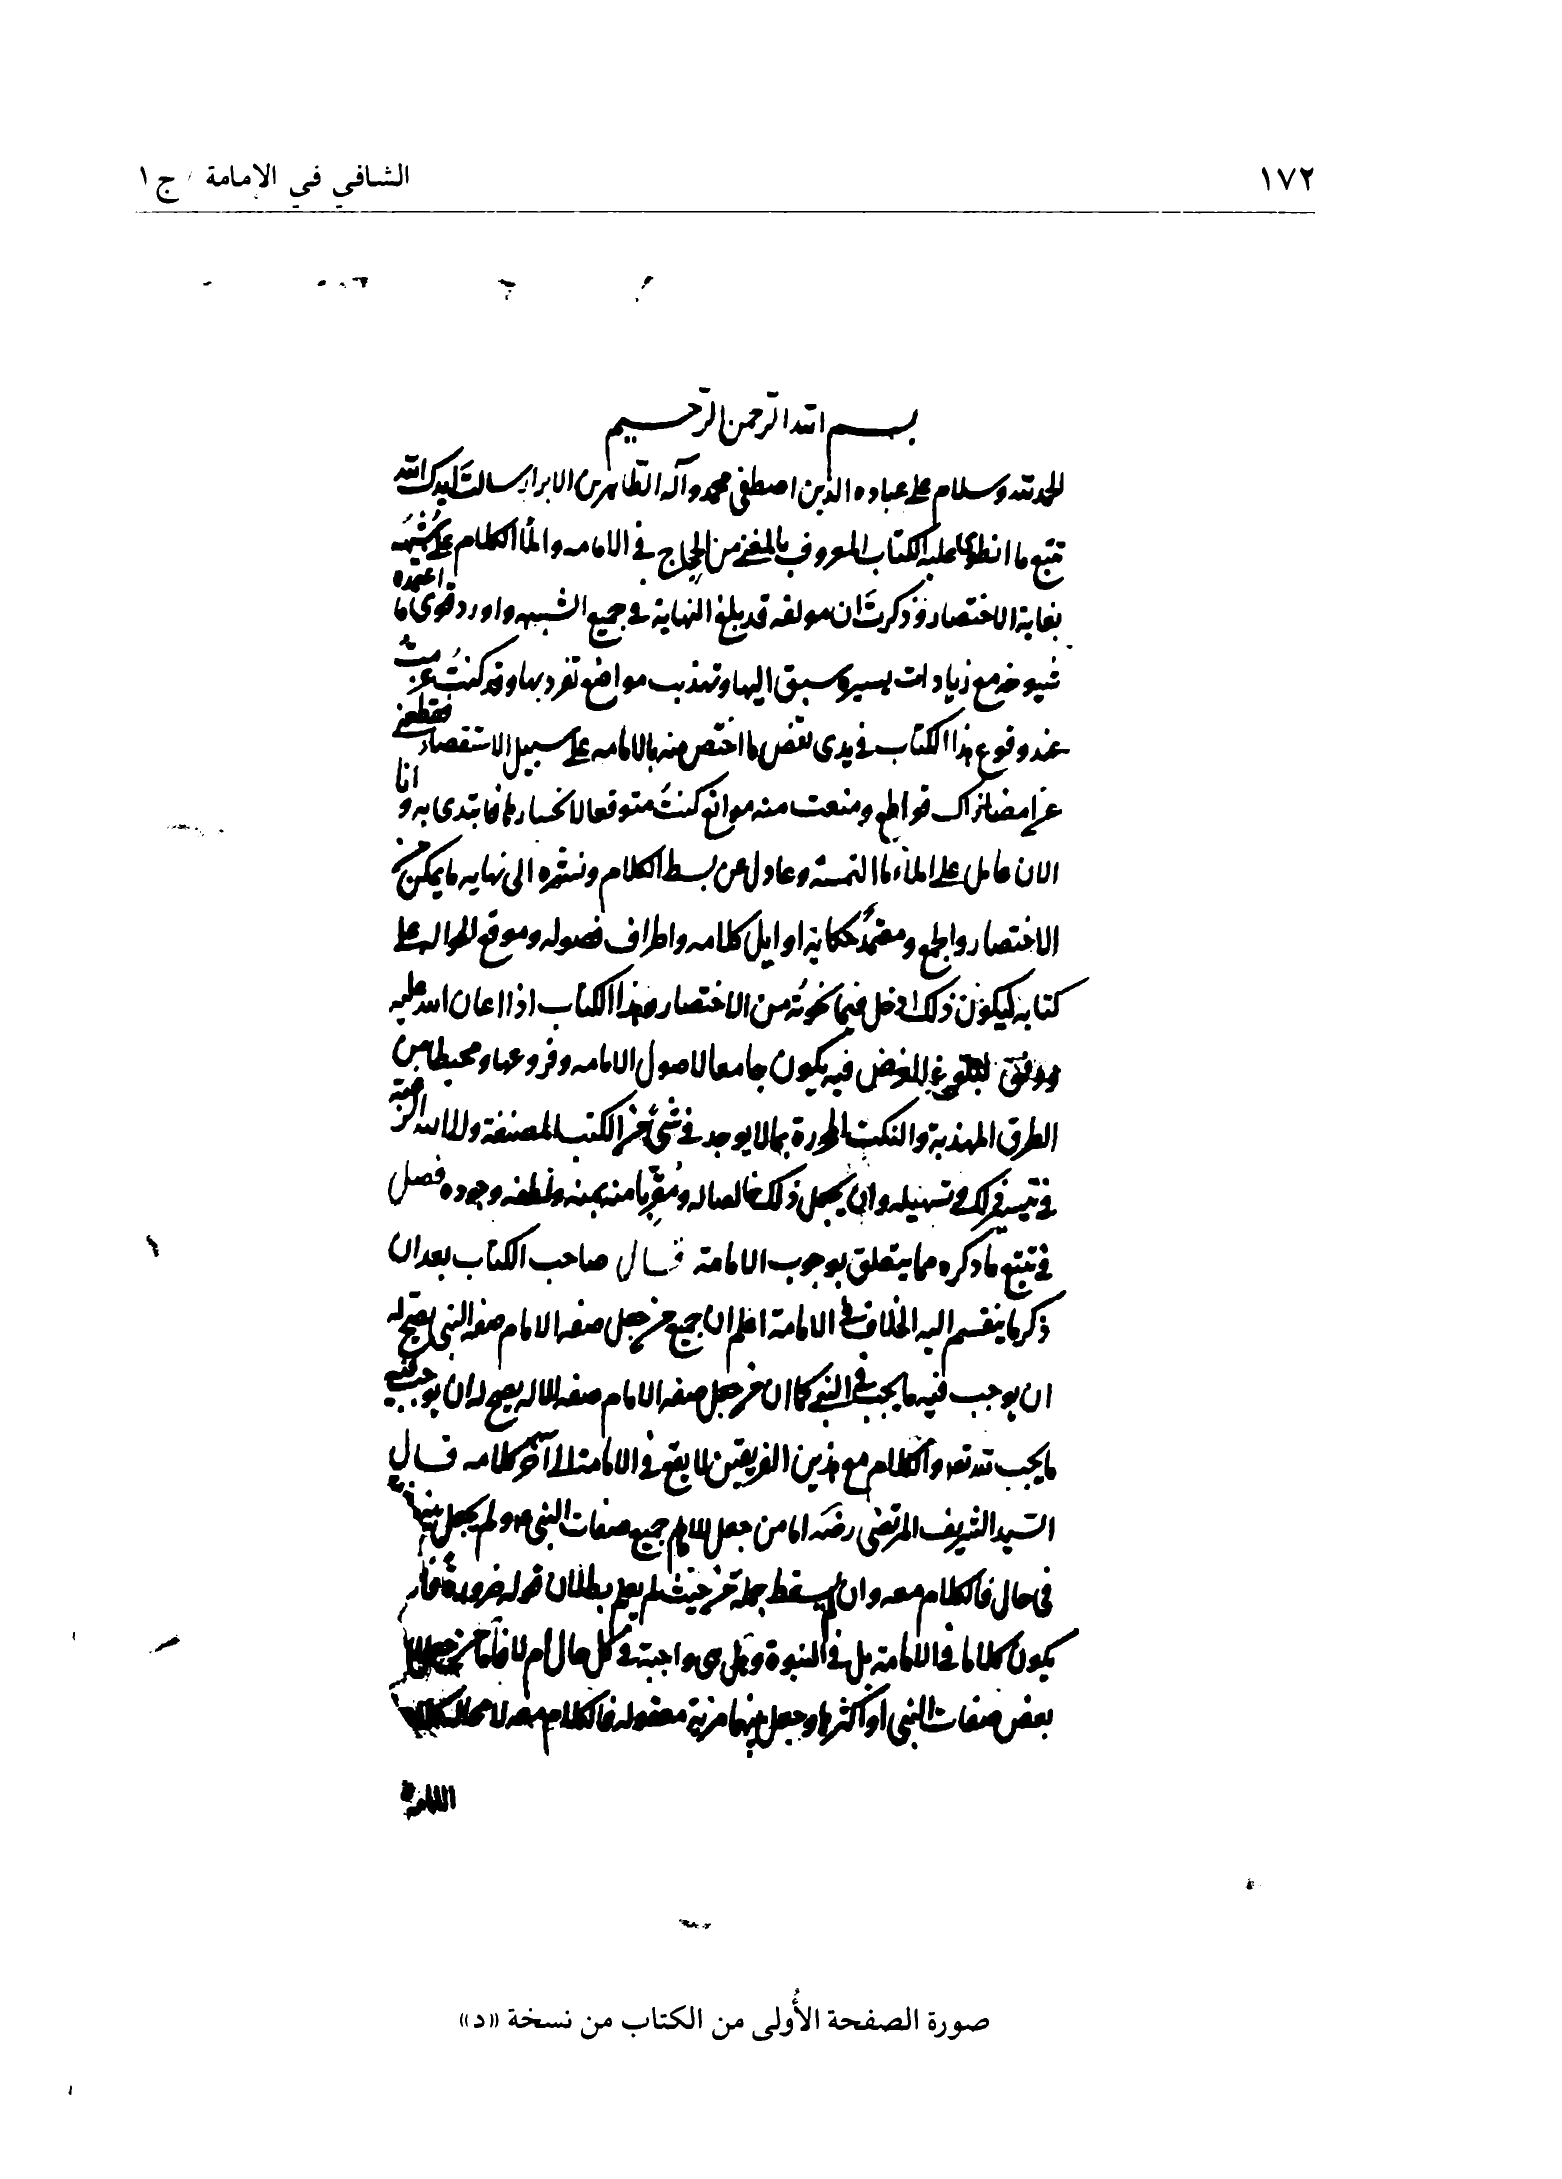 ١٧٢ الشافي في الإمامة / ج ١
بسم الله الرحمن الرحيم
الحمد لله وسلام على عباده الذين اصطفى محمد وآله الطاهرين الابرار سالت ايدك الله
تتبع ما انطوى عليه الكتاب المعروف بالمغني من الحجاج في الامامه واملأ الكلام على شبهه
بغاية الاختصار وذكرت ان مولفه قد بلغ النهاية في جميع الشبه واورد قوى ما اعتمده
شيوخه مع زيادات يسيرة سبق اليها وتهذيب مواضع تفرد بها وقد كنت عزمت
عند وقوع هذا الكتاب في يدى نقض ما اختص منه بالامامه على سبيل الاستقصاء فقطعني
عن امضا ذلك قواطع ومنعت منه موانع كنت متوقعا لانحسارها فابتدى به وانا
الان عامل على املاء ما التمسته وعادل عن بسط الكلام ونشره الى نهايه ما يمكن من
الاختصار والجمع ومعتمد حكاية اوايل كلامه واطراف فصوله وموقع الحواله على
كتابه ليكون ذلك ادخل فيما نحوته من الاختصار وهذا الكتاب اذا اعان الله عليه
ووفق لبلوغ الغرض فيه يكون جامعا لاصول الامامه وفروعها ومحيطا من
الطرق المهذبة والنكت المحررة بما لا يوجد في شئ من الكتب المصنفة والى الله الرغبة
في تيسير ذلك وتسهيله وان يجعل ذلك خالصا له ومقربا منه بمنه ولطفه وجوده فصل
في تتبع ما ذكره مما يتعلق بوجوب الامامة قال صاحب الكتاب بعد ان
ذكر ما ينقسم اليه الخلاف في الامامة اعلم ان جميع من جعل صفه الامام صفه النبى يصح له
ان يوجب فيه ما يجب في النبي كما ان من جعل صفه الامام صفه الاله يصح له ان يوجب فيه
ما يجب لله تعه والكلام مع هذين الفريقين لا يقع في الامامة الى آخر كلامه قال
السيد الشريف المرتضى رضه اما من جعل للامام جميع صفات النبى ص ولم يجعل بينهما مزية
في حال فالكلام معه وان لم يسقط جملة من حيث لم يعلم بطلان قوله ضرورة فلن
يكون كلاما في الامامة بل في النبوة وهل هى واجبة في كل حال ام لا فاما من جعل للامام
بعض صفات النبى او اكثرها وجعل بينهما مزية معقوله فالكلام معه لا محاله كلام
الامامة
صورة الصفحة الأُولى من الكتاب من نسخة «د»